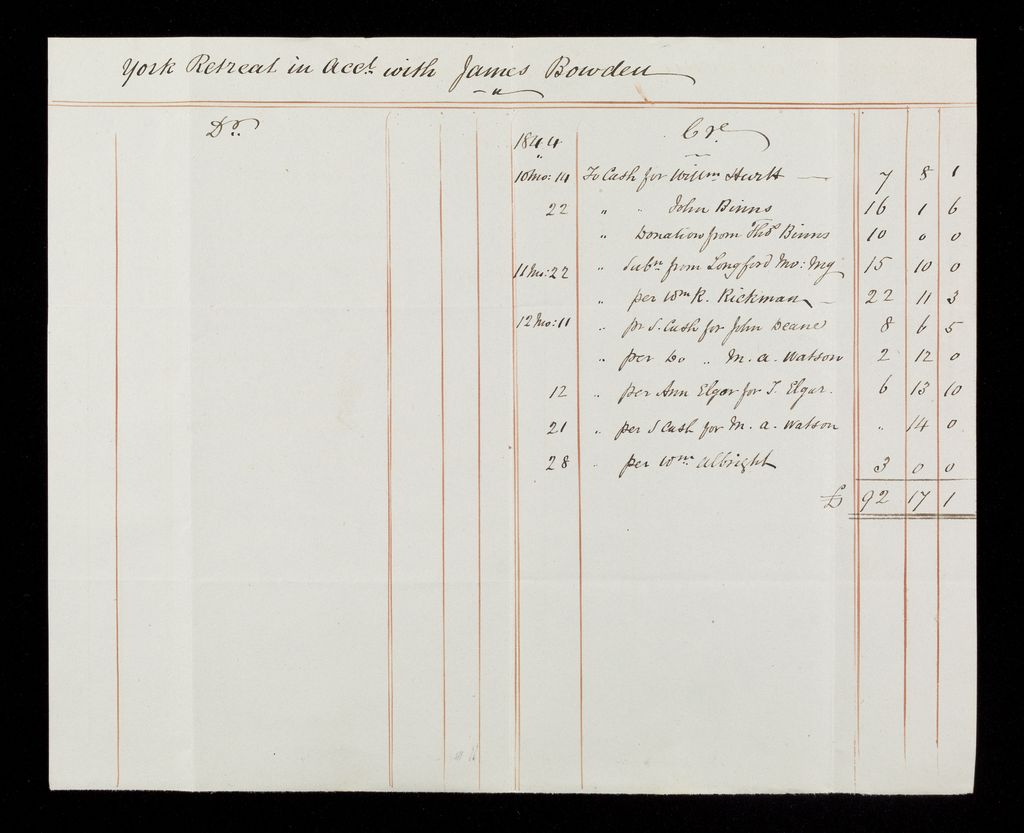 York Retreat in Acct. with James Bowden
Dr. Cre
1844
10 Mo: 14 To Cash for Willm Hurtt — 7 8 1
22 " " John Binns 16 1 6
" Donation from Thos Binns 10 0 0
11 Mo: 22 " Subn from Longford Mo: Mg 15 10 0
" per Wm R. Rickman — 22 11 3
12 Mo: 11 " pr S. Cash for John Deane 8 6 5
" per Do " M. A. Watson 2 12 0
12 " per Ann Elgar for J. Elgar. 6 13 10
21 " per S Cash for M. A. Watson " 14 0
28 " per Wm Albright 3 0 0
£ 92 17 1